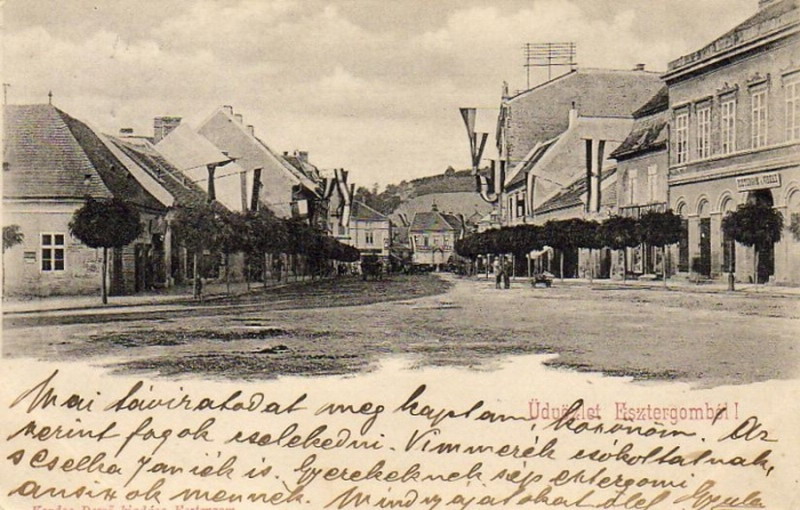 Üdvözlet Esztergomból!
Mai táviratodat meg kaptam, köszönöm. Az
szerint fogok cselekedni. Vimmerék csókoltatnak,
s Cselka Janiék is. Gyerekeknek szép esztergomi
ansixok mennek. Mindnyájatokat ölel Gyula